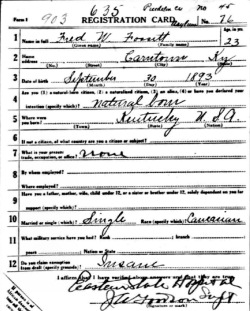 Form 1
903
635
Precinct
No 45
REGISTRATION CARD
No. 76
1 Name in full Fred W.
Age, in yrs. 23
(Given name) (Family name)
2 Home address Ky
(No.) (Street) (City) (State)
3 Date of birth September 30 1893
(Month) (Day) (Year)
4 Are you (1) a natural-born citizen, (2) a naturalized citizen, (3) an alien, (4) or have you declared your
intention (specify which)? natural born
5 Where were you born? Kentucky U.S.A.
(Town) (State) (Nation)
6 If not a citizen, of what country are you a citizen or subject?
7 What is your present trade, occupation, or office? None
8 By whom employed?
Where employed?
9 Have you a father, mother, wife, child under 12, or a sister or brother under 12, solely dependent on you for
support (specify which)?
10 Married or single (which)? Single Race (specify which)? Caucasian
11 What military service have you had? Rank
branch
years
Nation or State
12 Do you claim exemption from draft (specify grounds)? Insane
I affirm that I have verified above answers and that they are true.
Eastern State Hospital
Supt
(Signature or mark)